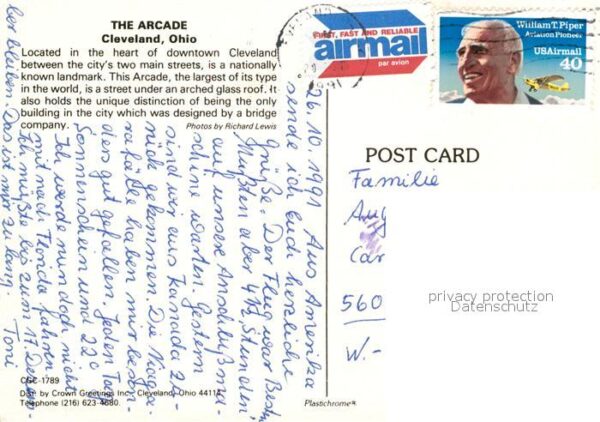 THE ARCADE
Cleveland, Ohio
Located in the heart of downtown Cleveland
between the city's two main streets, is a nationally
known landmark. This Arcade, the largest of its type
in the world, is a street under an arched glass roof. It
also holds the unique distinction of being the only
building in the city which was designed by a bridge
company.
Photos by Richard Lewis
FIRST, FAST AND RELIABLE
airmail
par avion
William T. Piper
Aviation Pioneer
USAirmail
40
POST CARD
Familie
Aug
Car
560
W.-
privacy protection
Datenschutz
26.10.1991 Aus Amerika
sende ich Euch herzliche
Grüße. Der Flug war Bestens,
mußten aber 4 ½ Stunden
auf unsere Anschlußma-
schine warten. Gestern
sind wir aus Kanada zu-
rück gekommen. Die Niaga-
rafälle haben mir beson-
ders gut gefallen. Jeden Tag
Sonnenschein und 22°
Ich werde nun doch nicht
mit nach Florida fahren
Ich müßte bis zum 17. Dezem-
ber bleiben. Das ist mir zu lang.
Toni
CGC-1789
Dist. by Crown Greetings Inc., Cleveland, Ohio 44114
Telephone (216) 623-4680.
Plastichrome®